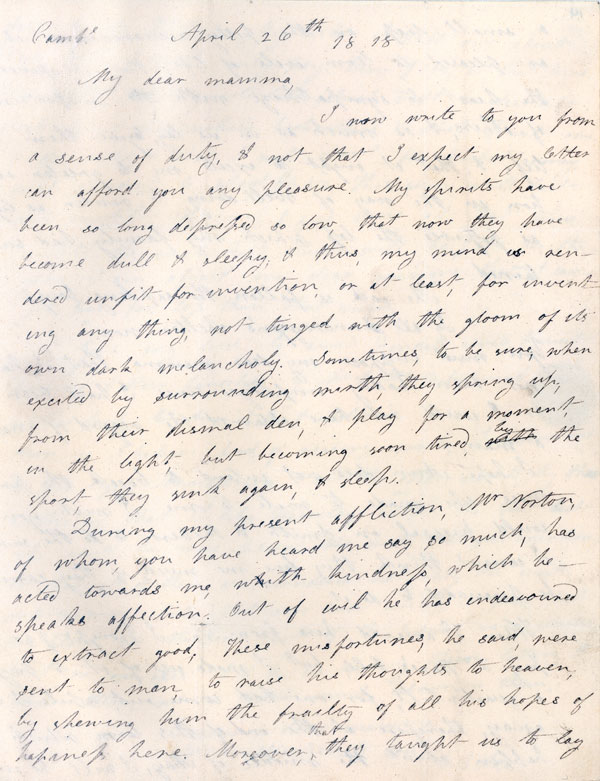 Camb.e April 26th 1818
My dear mamma,
I now write to you from
a sense of duty, & not that I expect my letter
can afford you any pleasure. My spirits have
been so long depressed so low, that now they have
become dull & sleepy, & thus, my mind is ren-
dered unfit for invention, or at least, for invent-
ing any thing, not tinged with the gloom of its
own dark melancholy. Sometimes, to be sure, when
excited by surrounding mirth, they spring up,
from their dismal den, & play for a moment,
in the light, but becoming soon tired, by the
sport, they sink again, & sleep.
During my present affliction, Mr Norton,
of whom, you have heard me say so much, has
acted towards me, with kindness, which be-
speaks affection. Out of evil he has endeavoured
to extract good, These misfortunes, he said, were
sent to man, to raise his thoughts to heaven,
by shewing him the frailty of all his hopes of
happiness here. Moreover, that they taught us to lay